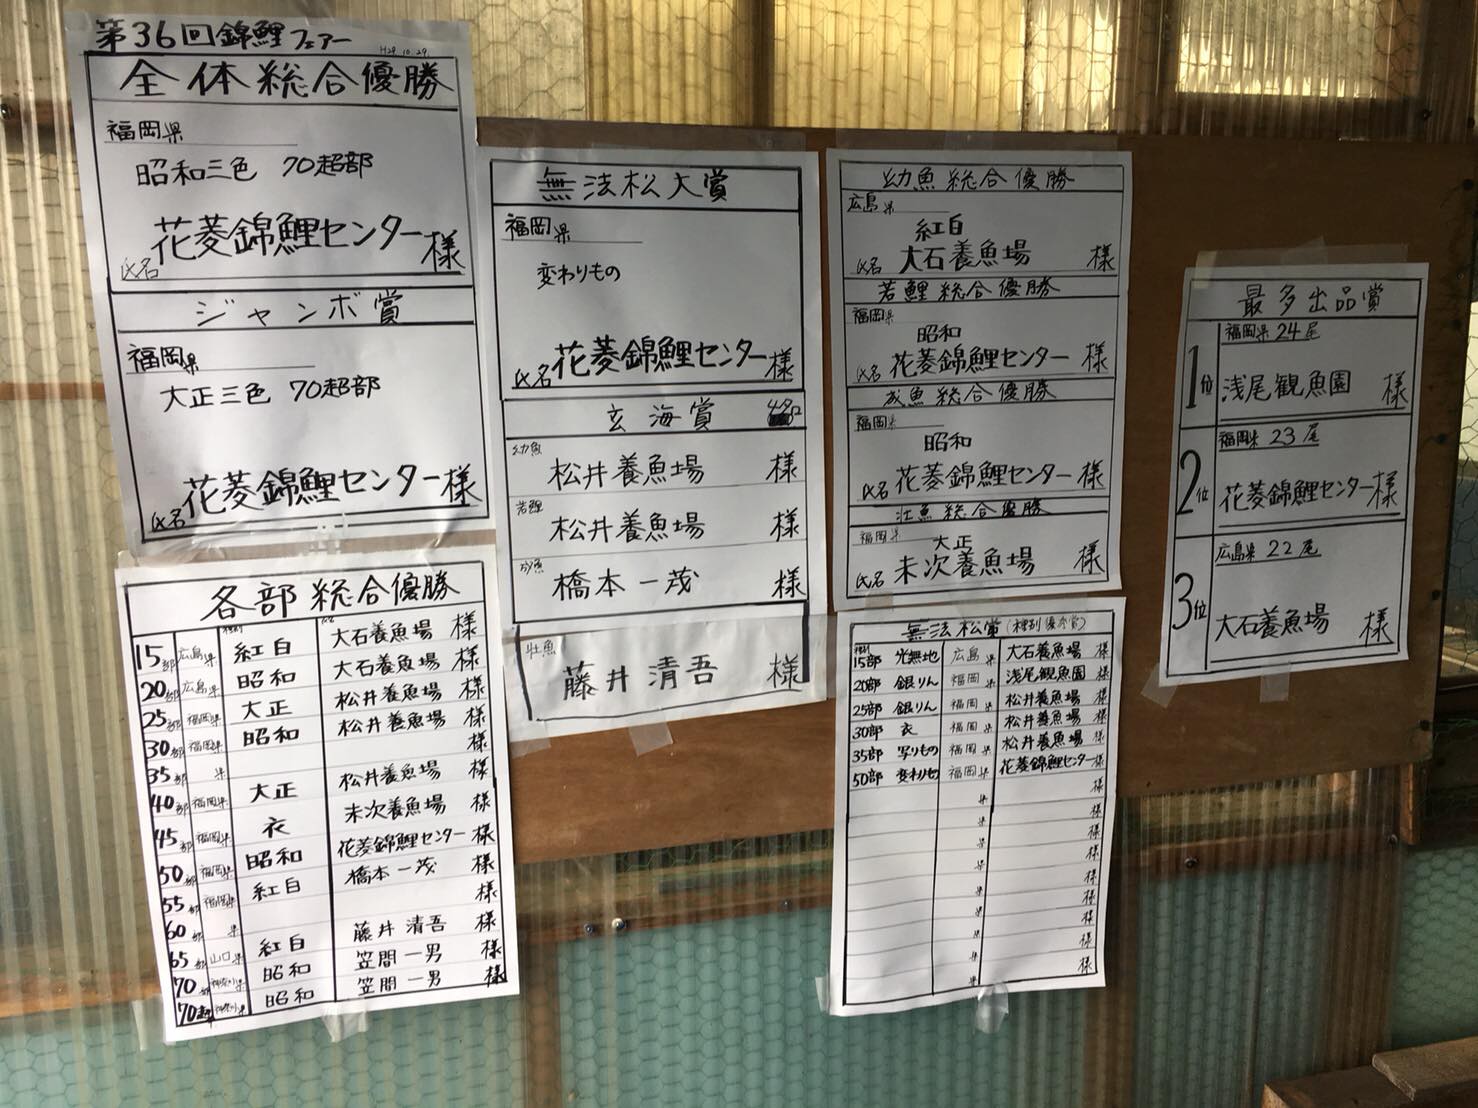 第36回錦鯉フェアー H29.10.29
全体総合優勝
福岡県
昭和三色 70超部
氏名 花菱錦鯉センター様
ジャンボ賞
福岡県
大正三色 70超部
氏名 花菱錦鯉センター様
各部総合優勝
15部 広島県 紅白 大石養魚場 様
20部 広島県 昭和 大石養魚場 様
25部 福岡県 大正 松井養魚場 様
30部 福岡県 昭和 松井養魚場 様
35部 県 様
40部 福岡県 大正 松井養魚場 様
45部 福岡県 衣 末次養魚場 様
50部 福岡県 昭和 花菱錦鯉センター 様
55部 福岡県 紅白 橋本一茂 様
60部 県 様
65部 山口県 紅白 藤井清吾 様
70部 神奈川県 昭和 笠間一男 様
70超 神奈川県 昭和 笠間一男 様
無法松大賞
福岡県
変わりもの
氏名 花菱錦鯉センター様
玄海賞
幼魚 松井養魚場 様
若鯉 松井養魚場 様
成魚 橋本一茂 様
壮魚 藤井清吾 様
幼魚総合優勝
広島県
紅白
氏名 大石養魚場 様
若鯉総合優勝
福岡県
昭和
氏名 花菱錦鯉センター 様
成魚総合優勝
福岡県
昭和
氏名 花菱錦鯉センター様
壮魚総合優勝
福岡県
大正
氏名 末次養魚場 様
無法松賞(種別優秀賞)
15部 光無地 広島県 大石養魚場 様
20部 銀りん 福岡県 浅尾観魚園 様
25部 銀りん 福岡県 松井養魚場 様
30部 衣 福岡県 松井養魚場 様
35部 写りもの 福岡県 松井養魚場 様
50部 変わりもの 福岡県 花菱錦鯉センター 様
県 様
県 様
県 様
県 様
県 様
県 様
県 様
県 様
県 様
最多出品賞
1位 福岡県 24尾
浅尾観魚園 様
2位 福岡県 23尾
花菱錦鯉センター様
3位 広島県 22尾
大石養魚場 様